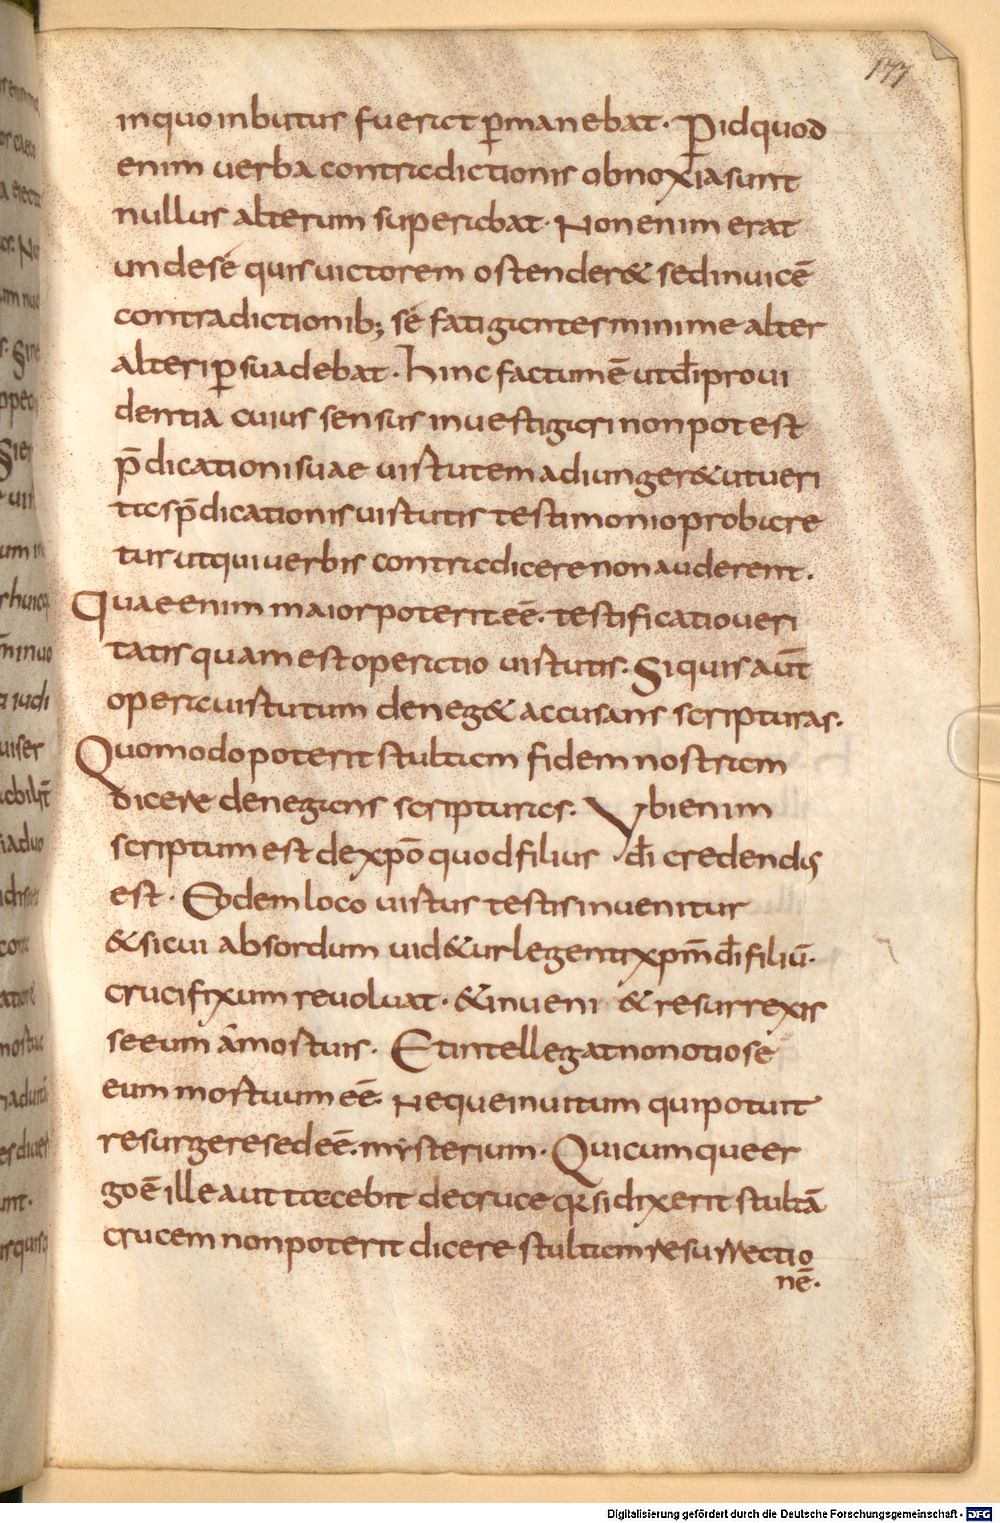 177
inquo inbutus fuerat p̄manebat. P̄idquod
enim uerba contradictionis obnoxia sunt
nullus alterum superabat. Non enim erat
undesé quis uictorem ostender& sedinuicē
contradictionib; sé fatigantes minime alter
alteri p̄suadebat. hinc factumē utd̄i proui
dentia cuius sensus inuestigari non potest
p̄dicationi suae uirtutem adiunger& ut ueri
tas p̄dicationis uirtutis testimonio probare
tur ut qui uerbis contradicere non auderent.
Quae enim maior poterit eē. testificatio ueri
tatis quam est operatio uirtutis. Siquis aūt
opera uirtutum deneg& accusans scripturas.
Quomodo poterit stultam fidem nostram
dicere denegans scripturas. Ubi enim
scriptum est dexp̄o quod filius d̄i credendus
est. Eodem loco uirtus testis inuenitur
& sicui absordum uid&ur legenti xpm̄ d̄i filiū.
crucifixum reuoluat. & inueni & resurrexis
se eum á mortuis. Et intellegat non otiose
eum mortuum eē. Neque inuitum qui potuit
resurgere sed eē. mysterium. Quicumque er
go ē ille aut tacebit de cruce q̄ si dixerit stultā
crucem non poterit dicere stultam resurrectio
nē.
Digitalisierung gefördert durch die Deutsche Forschungsgemeinschaft - DFG